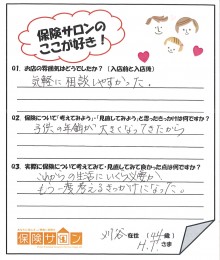 保険サロンの
ここが好き！
Q1. お店の雰囲気はどうでしたか？（入店前と入店後）
気軽に相談しやすかった。
Q2. 保険について「考えてみよう」・「見直してみよう」と思ったきっかけは何ですか？
子供の年齢が大きくなってきたから
Q3. 実際に保険について考えてみて・見直してみて良かった点は何ですか？
これからの生活にいくら必要か
もう一度考えるきっかけになった。
保険サロン
刈谷 在住（44歳）
H.M さま